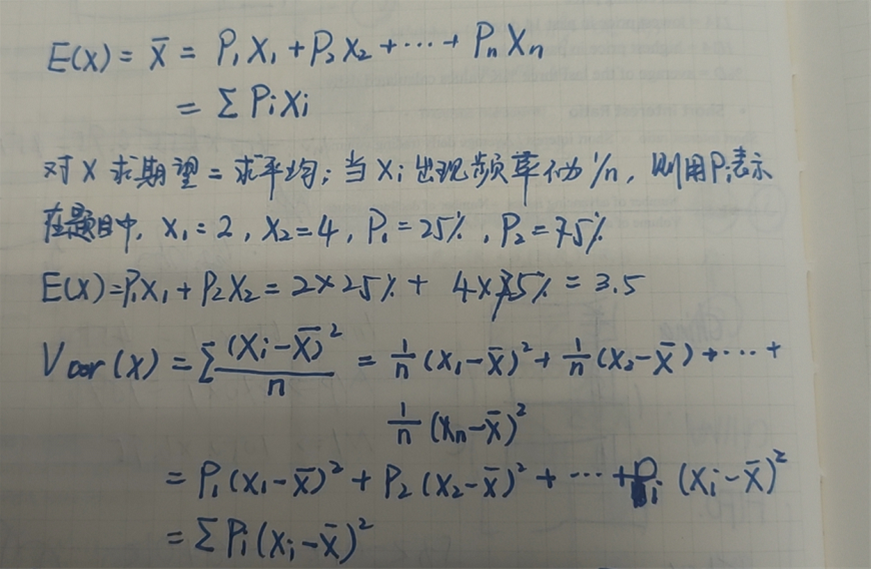 E(x) = x̄ = P₁X₁ + P₂X₂ + ... + PₙXₙ
= ΣPᵢXᵢ
对X求期望=求平均;当Xᵢ出现频率不为1/n,则用Pᵢ表示
在题目中,X₁=2,X₂=4,P₁=25%,P₂=75%
E(x)=P₁X₁+P₂X₂=2×25%+4×75%=3.5
Var(x) = Σ(Xᵢ-X̄)²/n = 1/n(X₁-X̄)²+1/n(X₂-X̄)+...+
1/n(Xₙ-X̄)²
= P₁(X₁-X̄)²+P₂(X₂-X̄)²+...+Pᵢ(Xᵢ-X̄)²
= ΣPᵢ(Xᵢ-X̄)²